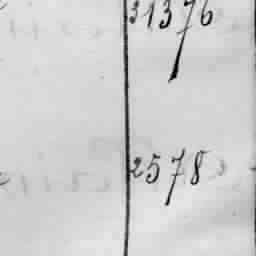 31376
2578